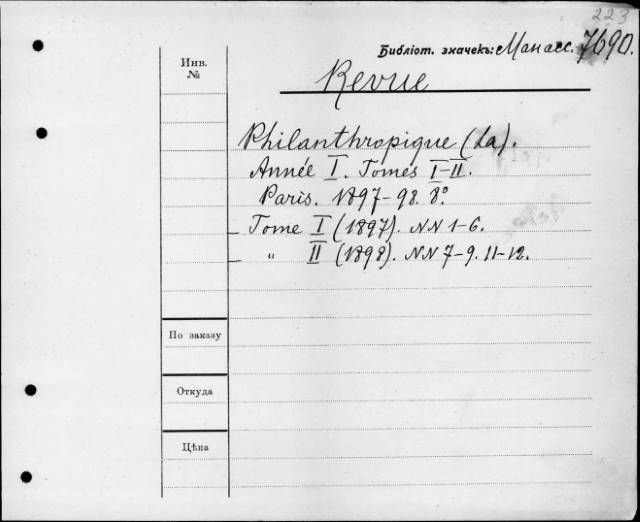 223
Библіот. значекъ: Манасс. 7690.
Инв.
№
Revue
Philanthropique (La).
Année I. Tomes I-II.
Paris. 1897-98. 8º
— Tome I (1897). NN 1-6.
— " II (1898). NN 7-9. 11-12.
По заказу
Откуда
Цѣна